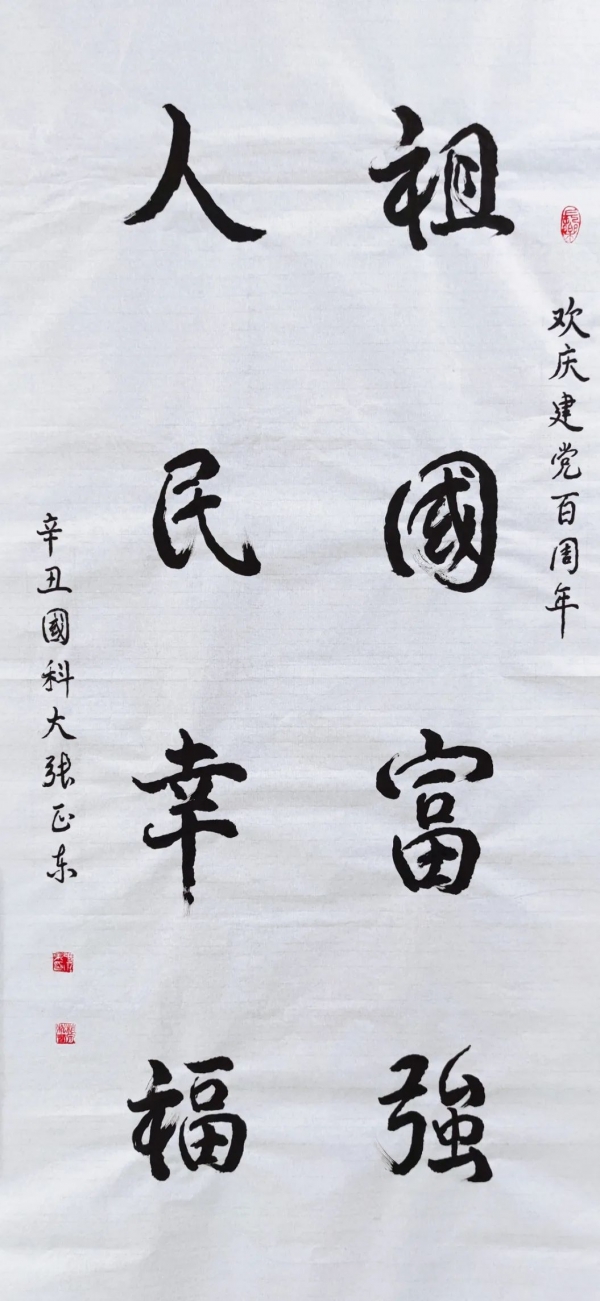 欢庆建党百周年
祖國富強
人民幸福
辛丑國科大张正东